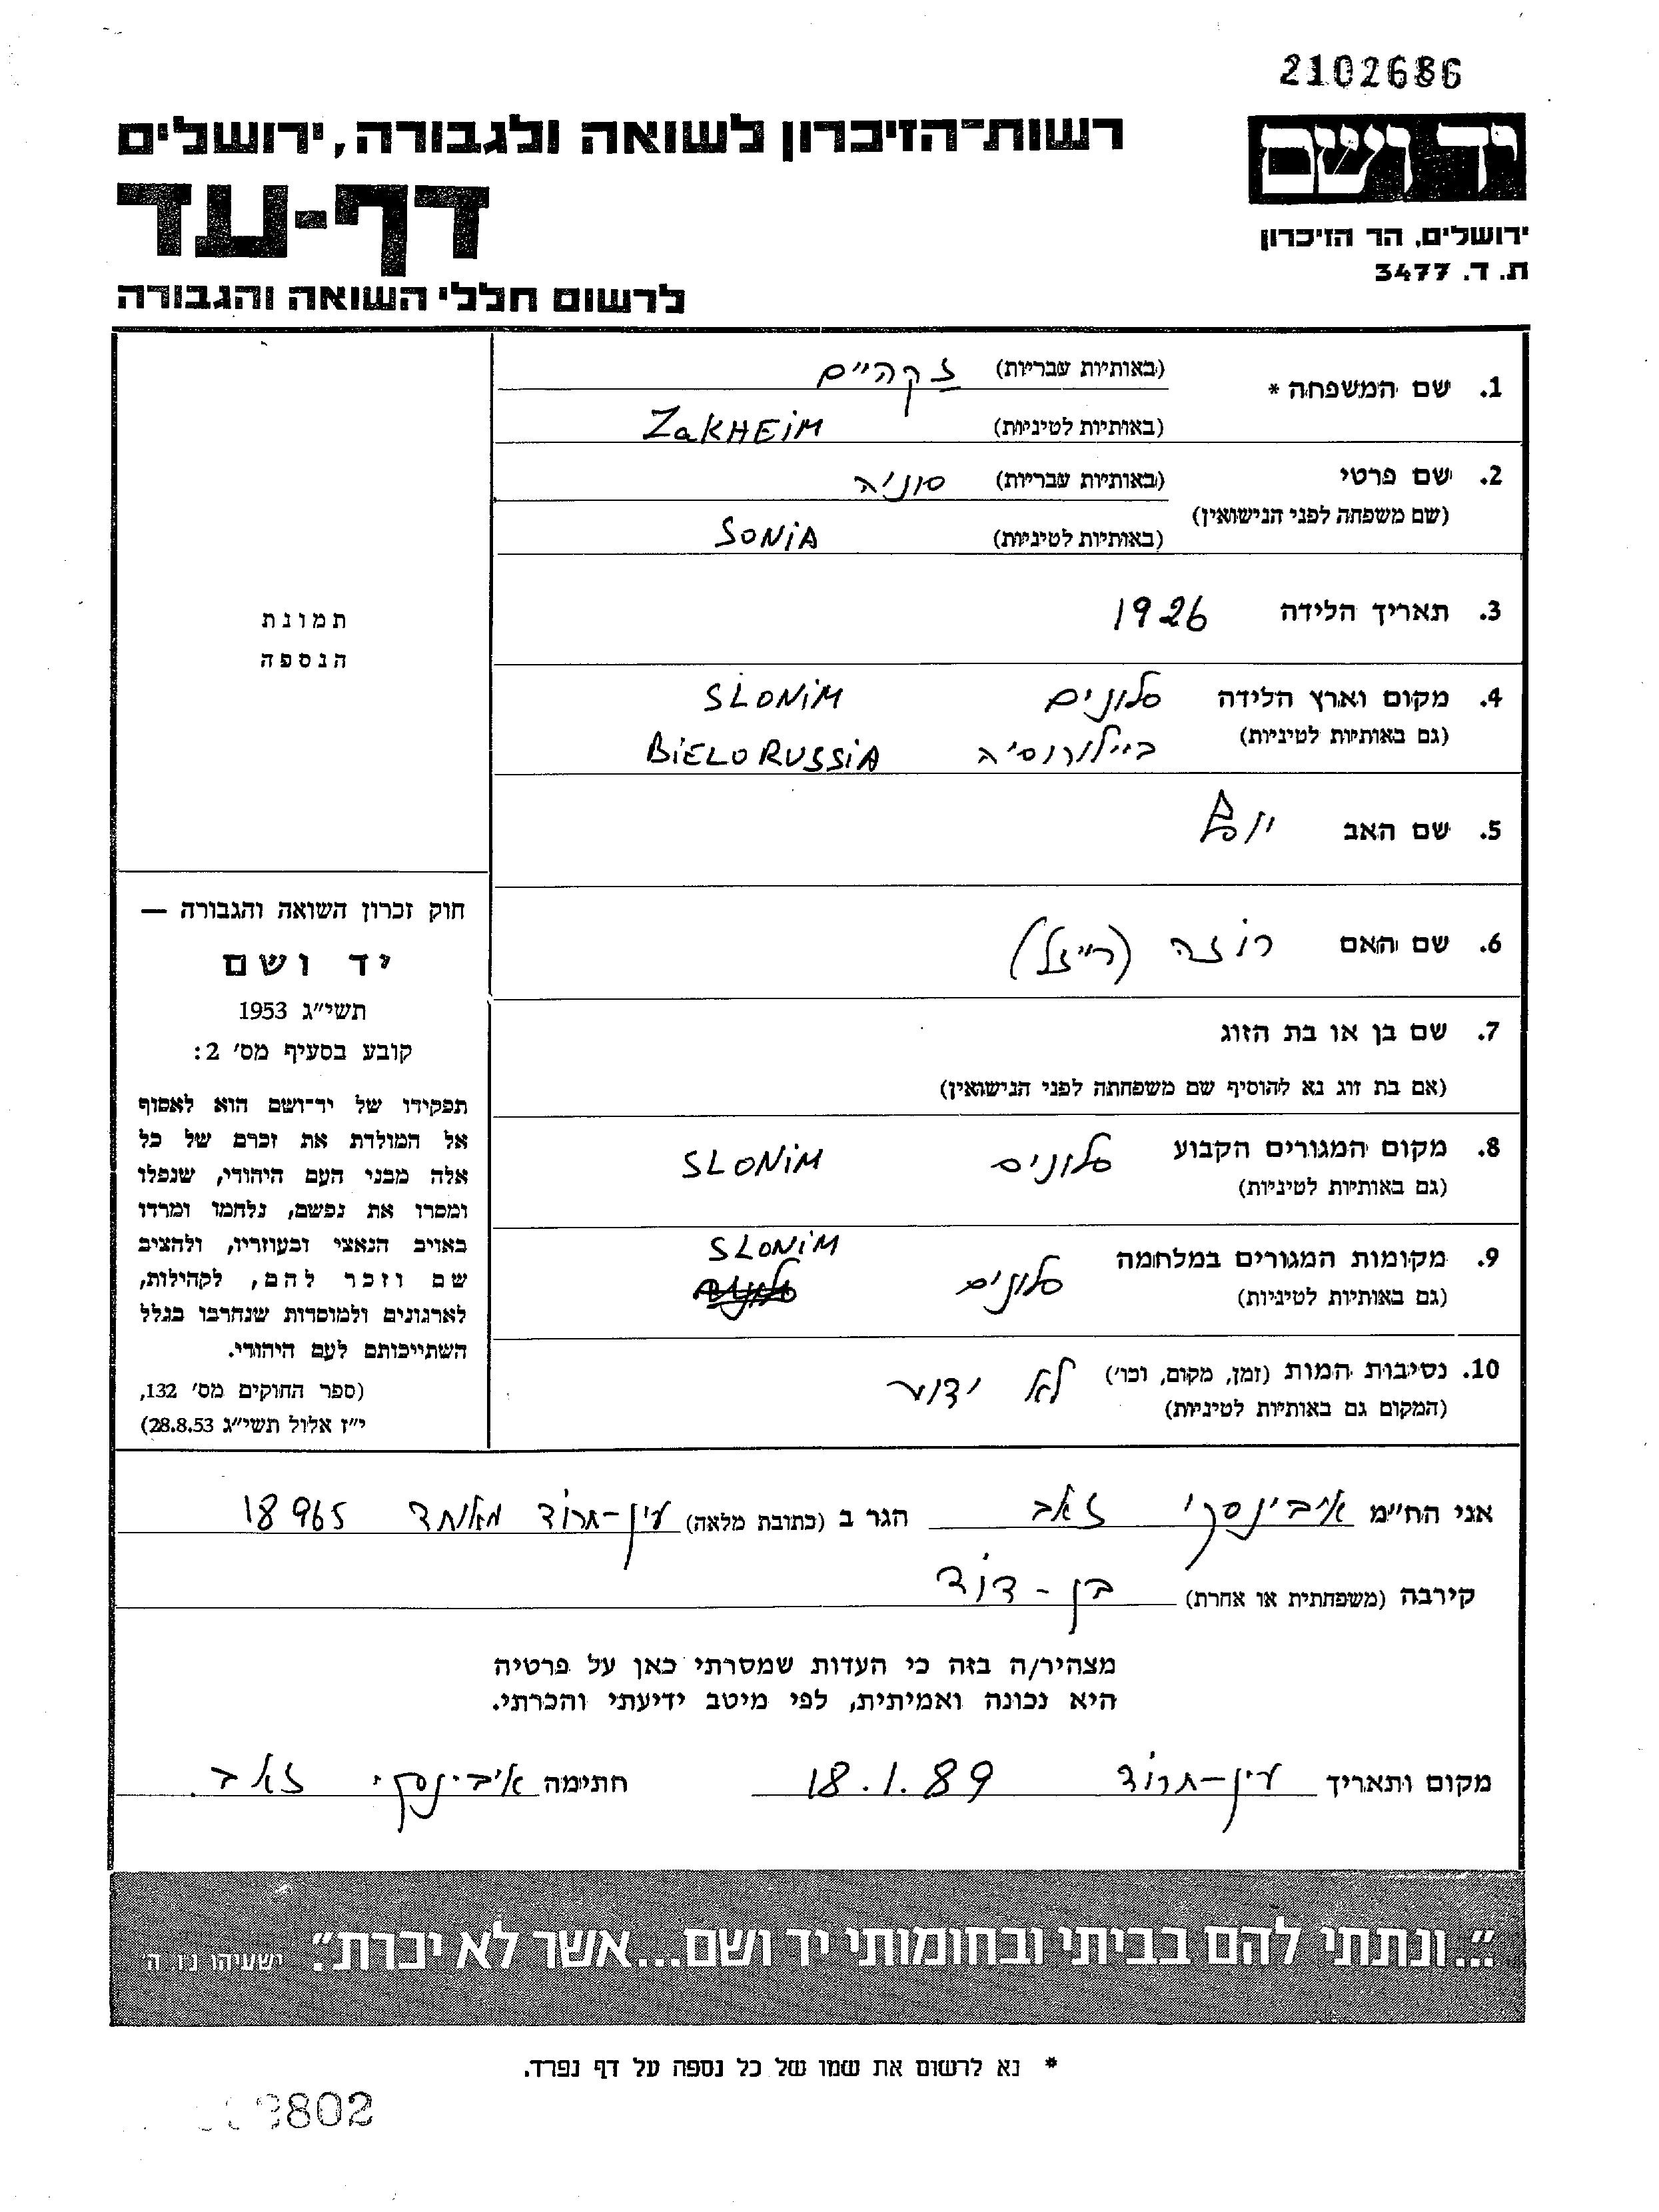 2102686
יד ושם
רשות־הזיכרון לשואה ולגבורה, ירושלים
דף-עד
ירושלים, הר הזיכרון
ת. ד. 3477
לרשום חללי השואה והגבורה
1. שם המשפחה * (באותיות עבריות) זקהיים
(באותיות לטיניות) ZAKHEIM
2. שם פרטי (באותיות עבריות) סוניה
(שם משפחה לפני הנישואין)
(באותיות לטיניות) SONIA
3. תאריך הלידה 1926
4. מקום וארץ הלידה סלונים SLONIM
(גם באותיות לטיניות) ביילורוסיה BIELORUSSIA
5. שם האב
6. שם האם רוזה (רייזל)
7. שם בן או בת הזוג
(אם בת זוג נא להוסיף שם משפחתה לפני הנישואין)
8. מקום המגורים הקבוע סלונים SLONIM
(גם באותיות לטיניות)
9. מקומות המגורים במלחמה סלונים SLONIM
(גם באותיות לטיניות)
10. נסיבות המות (זמן, מקום, וכו') לא ידוע
(המקום גם באותיות לטיניות)
תמונת
הנספה
חוק זכרון השואה והגבורה —
יד ושם
תשי"ג 1953
קובע בסעיף מס' 2:
תפקידו של יד־ושם הוא לאסוף
אל המולדת את זכרם של כל
אלה מבני העם היהודי, שנפלו
ומסרו את נפשם, נלחמו ומרדו
באויב הנאצי ובעוזריו, ולהציב
שם וזכר להם, לקהילות,
לארגונים ולמוסדות שנחרבו בגלל
השתייכותם לעם היהודי.
(ספר החוקים מס' 132,
י"ז אלול תשי"ג 28.8.53)
אני הח"מ איבינסקי זאב הגר ב (כתובת מלאה) עין-חרוד מאוחד 18965
קירבה (משפחתית או אחרת) בן-דוד
מצהיר/ה בזה כי העדות שמסרתי כאן על פרטיה
היא נכונה ואמיתית, לפי מיטב ידיעתי והכרתי.
מקום ותאריך עין-חרוד 18.1.89 חתימה איבינסקי זאב.
"...ונתתי להם בביתי ובחומותי יד ושם...אשר לא יכרת". ישעיהו נו, ה'
* נא לרשום את שמו של כל נספה על דף נפרד.